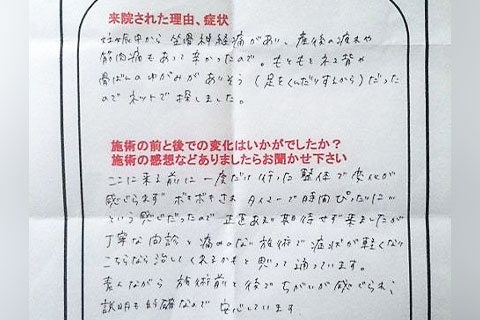 来院された理由、症状
妊娠中から坐骨神経痛があり、産後の疲れや
筋肉痛もあって辛かったので。もともとねこ背や
骨ばんのゆがみがありそう(足をくんだりするから)だった
のでネットで探しました。
施術の前と後での変化はいかがでしたか?
施術の感想などありましたらお聞かせ下さい
ここに来る前に一度だけ行った整体で変化が
感じられず ボキボキされ タイマーで時間ぴったりに
という感じだったので 正直あまり期待せず来ましたが
丁寧な問診と痛みのない施術で症状が軽くなり
こちらなら治してくれるかもと思って通っています。
素人ながら 施術前と後でちがいが感じられ、
説明も的確なので 安心しています